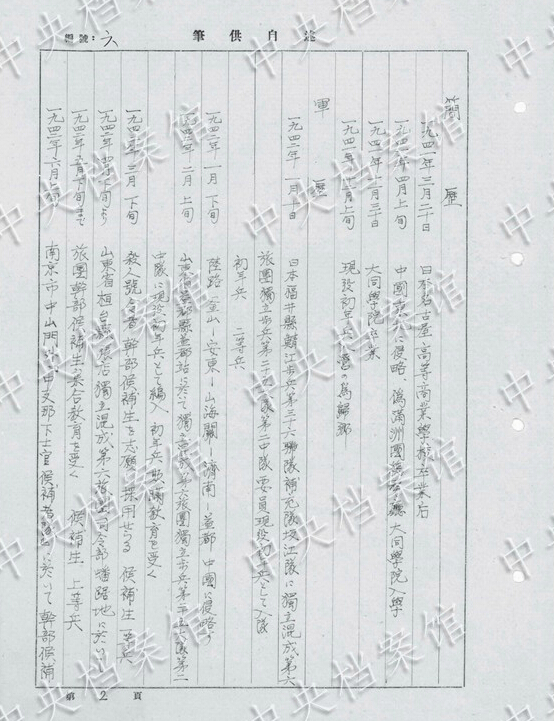 編號：六
筆供白述
簡歷
一九四一年三月二十日 日本名古屋高等商業學校卒業后
一九四一年四月上旬 中國 に侵略 偽滿洲國 大同學院入學
一九四一年十一月三十日 大同學院卒業
一九四一年十二月上旬 現役初年兵入營の為歸鄉
軍歷
一九四二年一月十日 日本福井縣鯖江步兵第三十六聯隊補充隊堤江隊に獨立混成第六
旅團獨立步兵第二十 大隊第二中隊要員現役初年兵として入隊
初年兵 二等兵
一九四二年一月下旬 陸路 釜山—安東—山海關—濟南—益都 中國に侵略す
一九四二年二月上旬 山東省益都縣益都站に於いて獨立混成第六旅團獨立步兵第二十 大隊第二
中隊に現役初年兵として編入 初年兵欺瞞教育を受く
一九四二年三月下旬 殺人號令者 幹部候補生を志願 採用せらる 候補生 一等兵
一九四二年 月下旬より 山東省桓台縣張店獨立混成第六旅團司令部 地に於いて
一九四二年五月下旬まで 旅團幹部候補生集合教育を受く 候補生 上等兵
一九四二年六月上旬 南京市中山門 中支那下士官候補者隊に於いて幹部候補
第2頁
中央档案馆